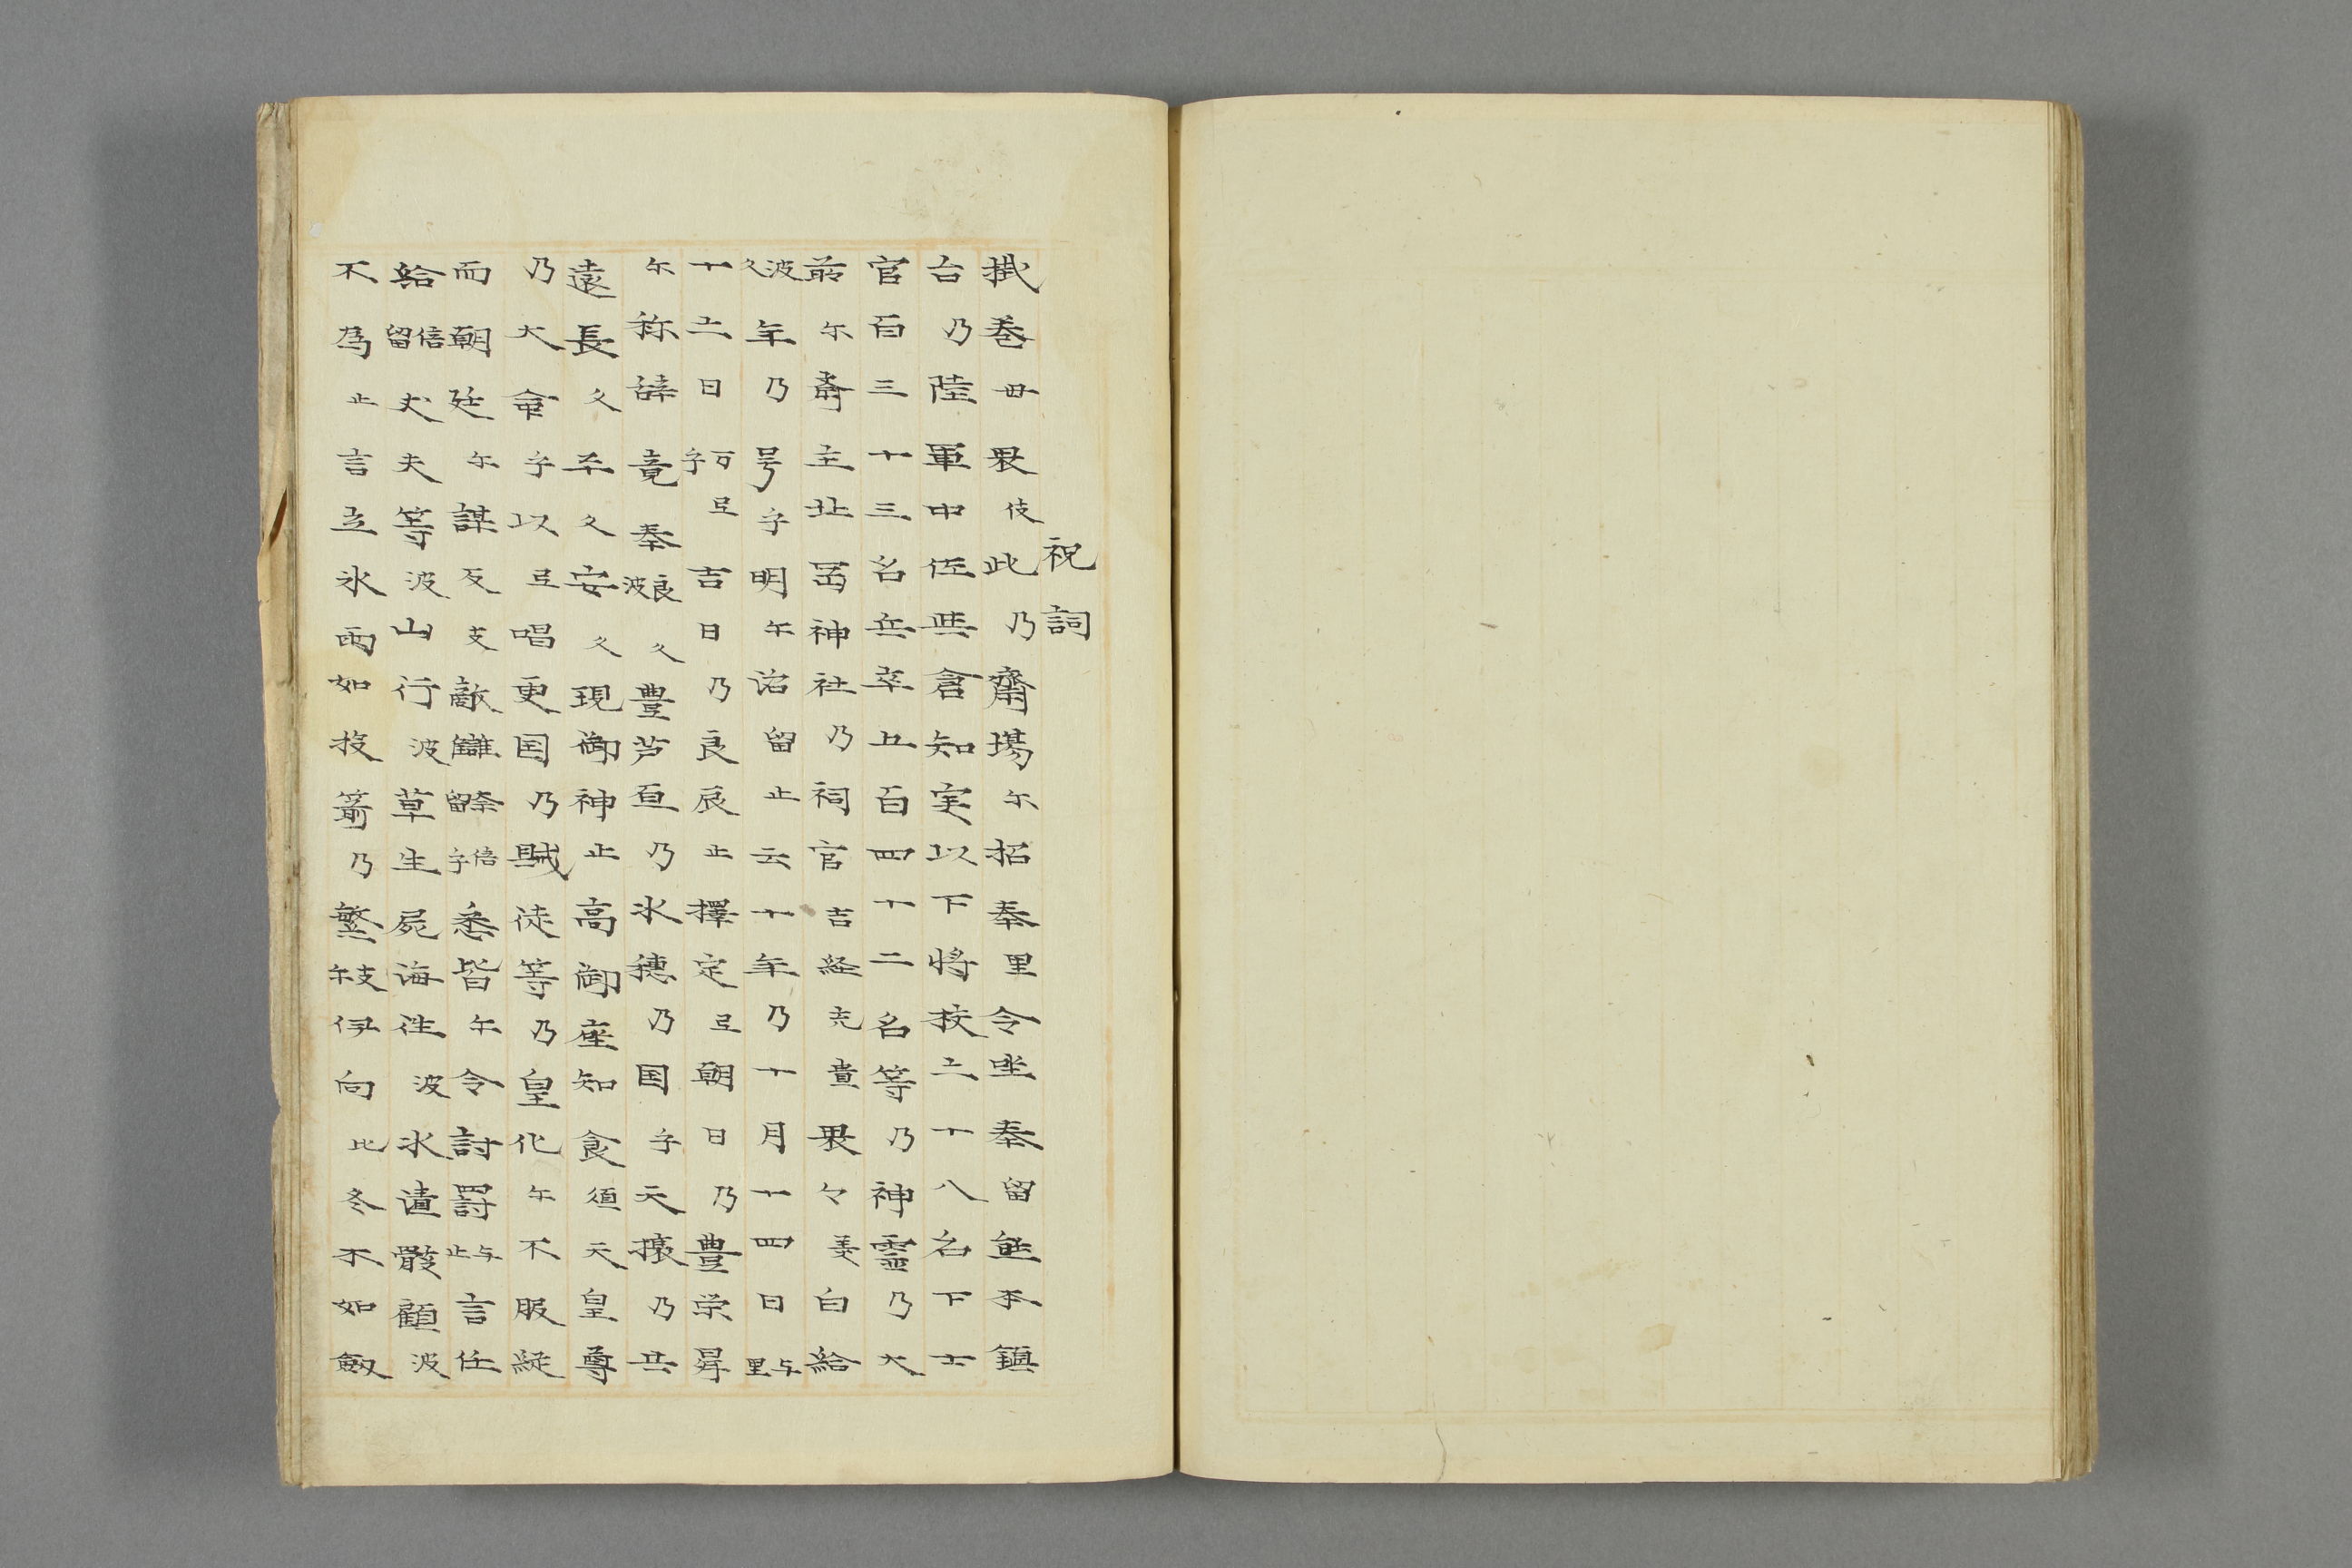 祝詞
掛巻毋畏伎此乃齋場尓招奉里令坐奉留熊本鎮
台乃陸軍中佐與倉知実以下将校五十八名下士
官百三十三名兵卒五百四十二名等乃神霊乃大
前尓齋主北岡神社乃祠官吉経充貴畏々美白給
波久年乃号乎明尓治留止云十年乃十月十四日与里
十五日乎万弖吉日乃良辰止擇定弖朝日乃豊栄昇
尓称辞竟奉良波久豊芦亘乃水穂乃国乎天攘乃共
遠長久平久安久現御神止高御座知食須天皇尊
乃大命乎以弖唱更国乃賊徒等乃皇化尓不服縦
而朝廷尓謀反支敵讎奈留倍乎悉皆尓令討罰与止言任
給信留丈夫等波山行波草生屍海往波水漬骸顧波
不為止言立氷雨如投箭乃繁尓支伊向比冬木如劔